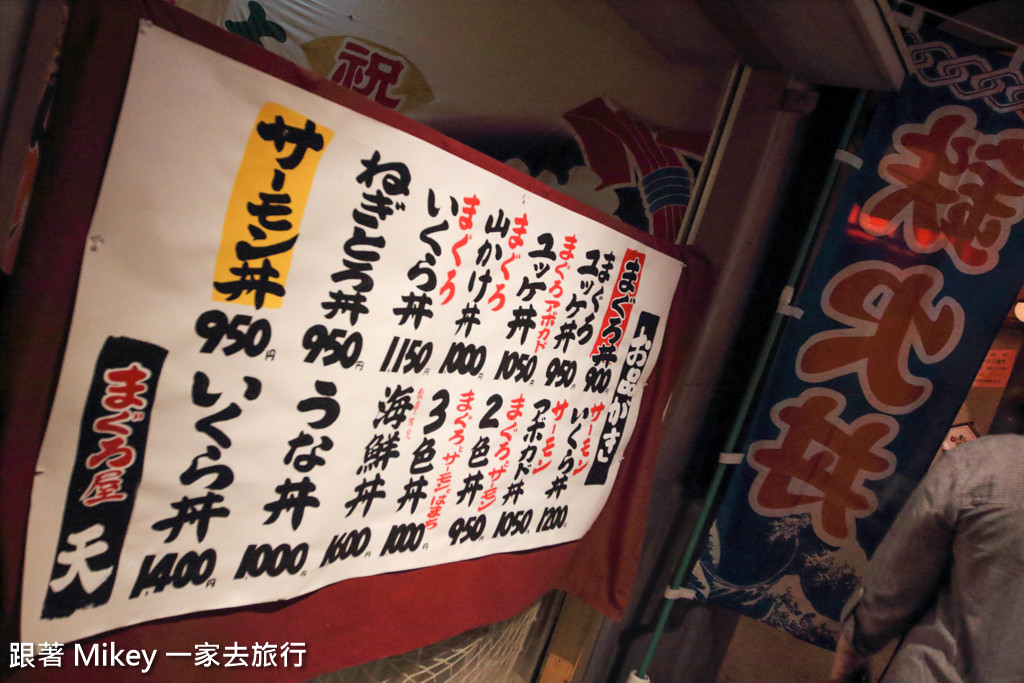 祝
お品がき
まぐろ丼 800円
まぐろ
ユッケ丼 950円
まぐろアボカド
ユッケ丼 1050円
まぐろ
山かけ丼 1000円
まぐろ
いくら丼 1150円
ねぎとろ丼 950円
サーモン丼 950円
サーモン
いくら丼 1200円
サーモン
アボカド丼 1050円
まぐろとサーモン
2色丼 950円
まぐろとサーモンとはまち
3色丼 1000円
海鮮丼 1600円
うな丼 1000円
いくら丼 1400円
まぐろ屋 天
丼
跟著 Mikey 一家去旅行